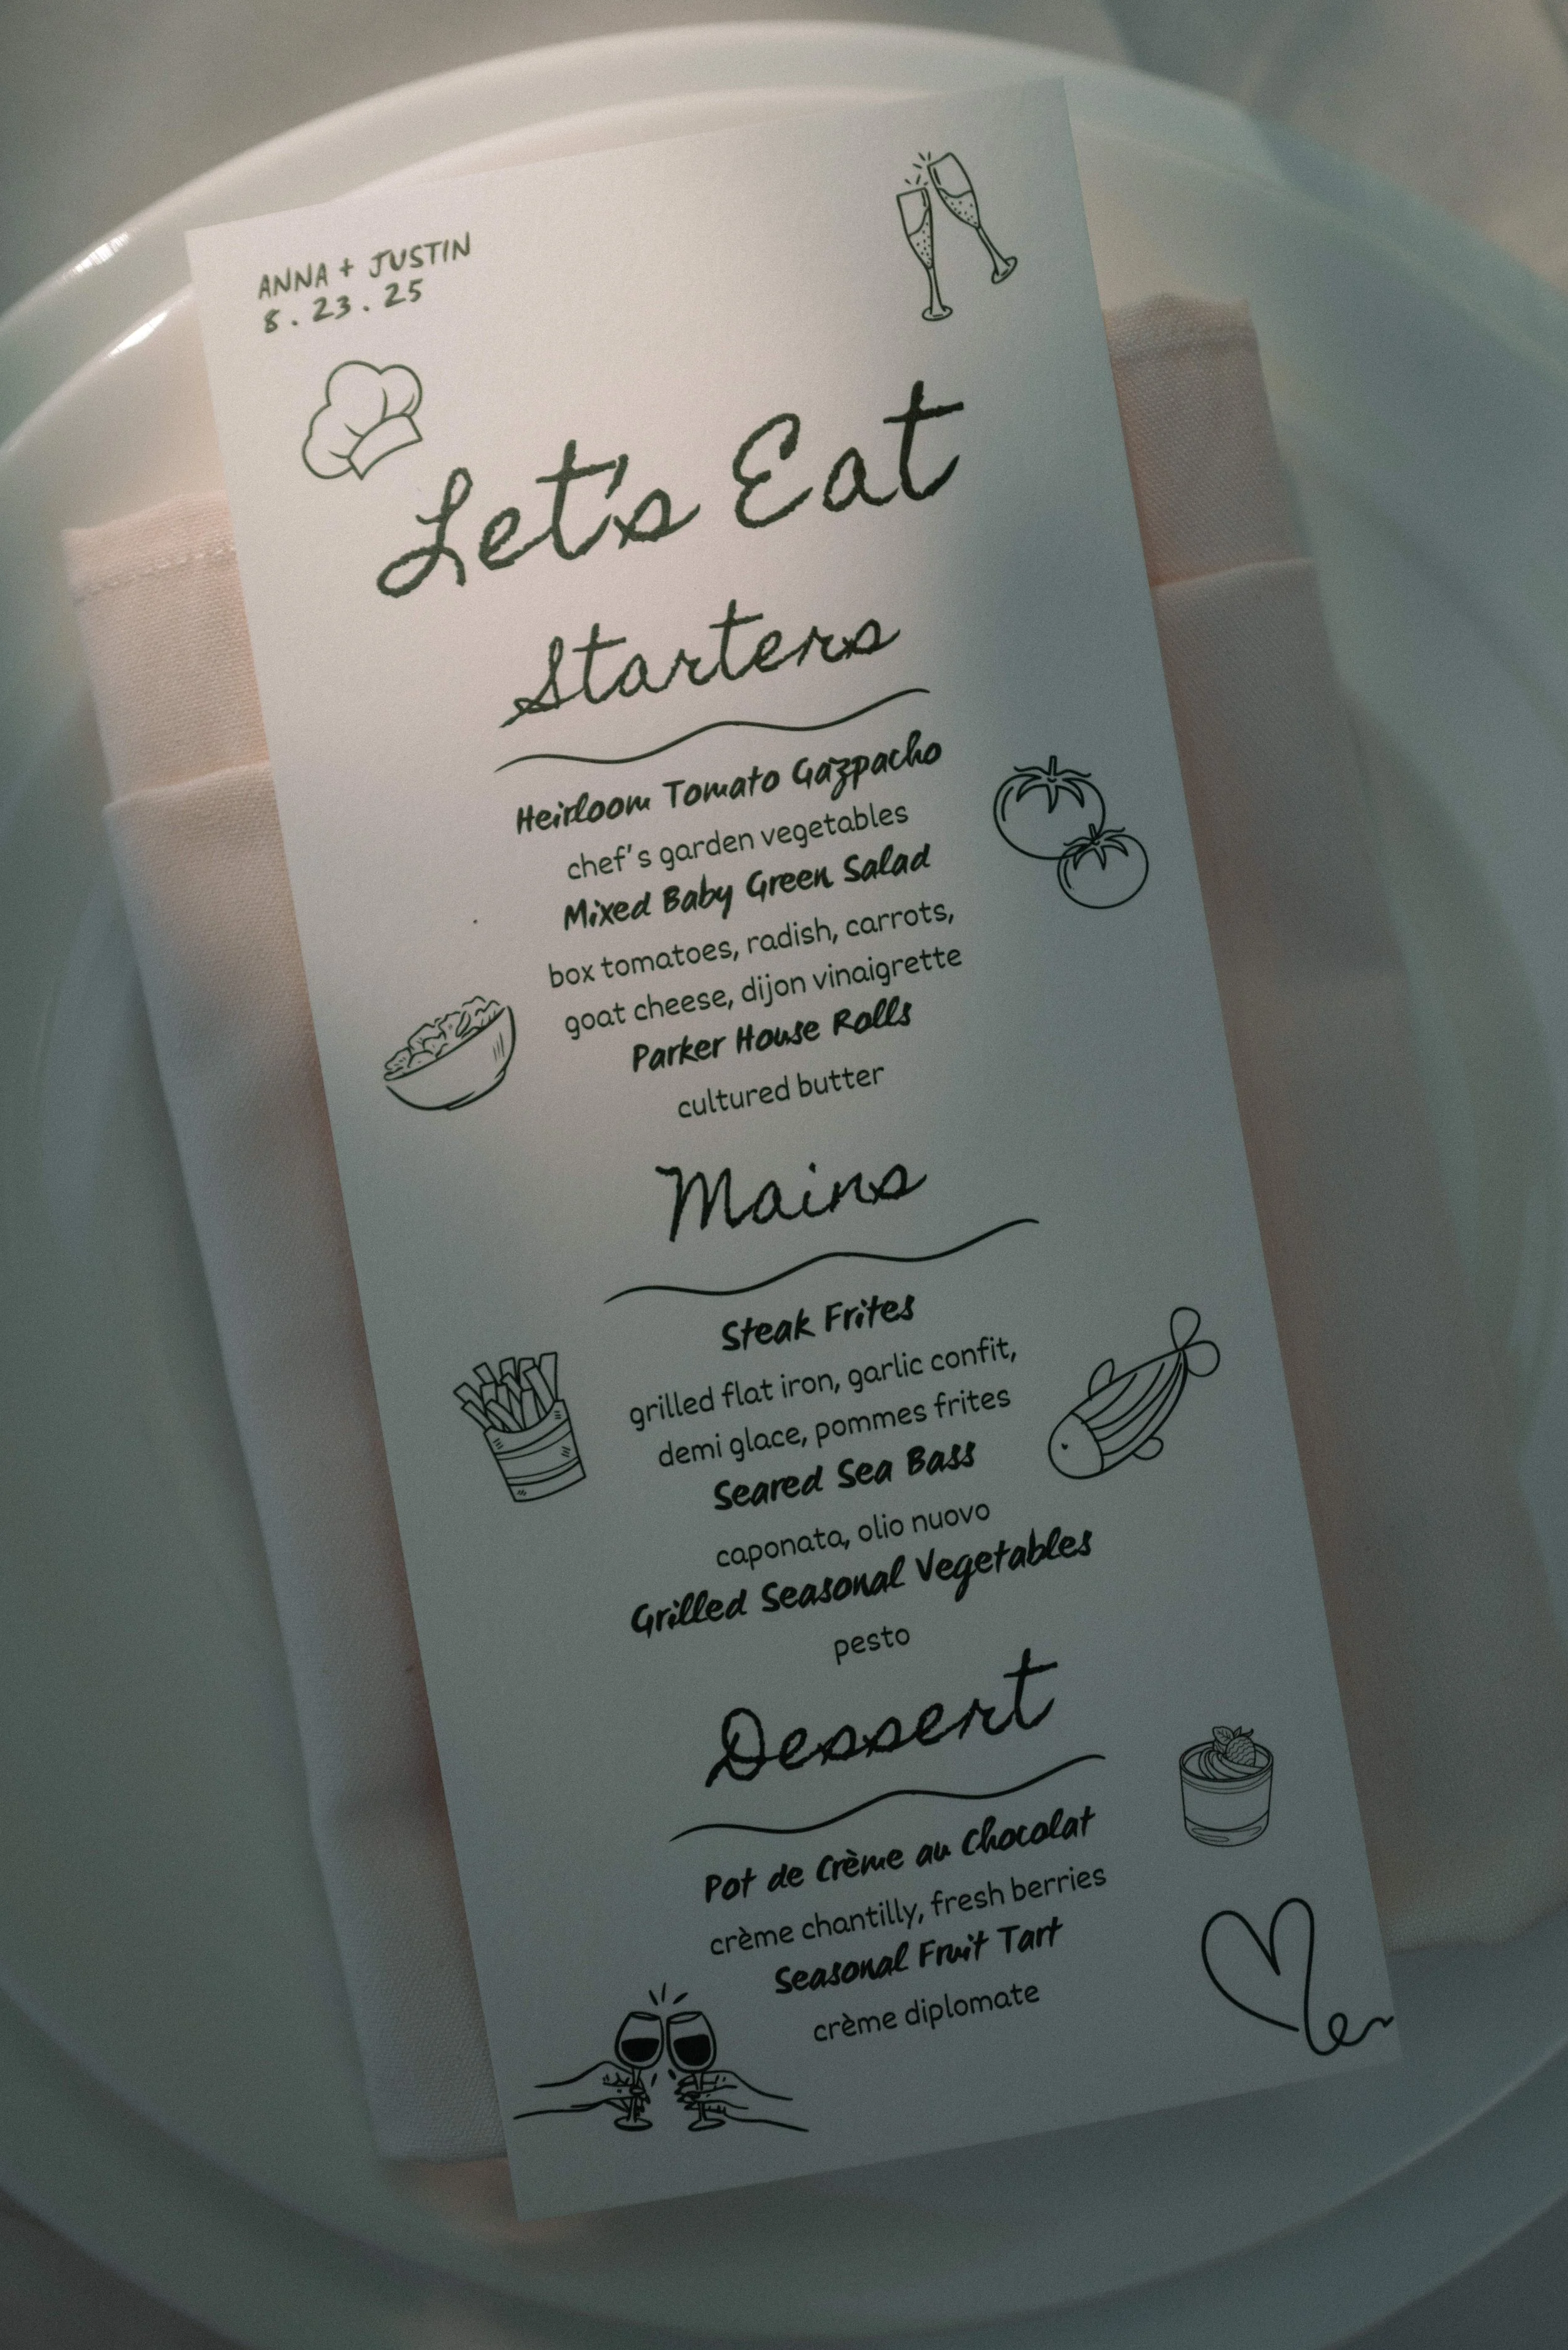 ANNA + JUSTIN
8.23.25
Let's Eat
Starters
Heirloom Tomato Gazpacho
chef's garden vegetables
Mixed Baby Green Salad
box tomatoes, radish, carrots,
goat cheese, dijon vinaigrette
Parker House Rolls
cultured butter
Mains
Steak Frites
grilled flat iron, garlic confit,
demi glace, pommes frites
Seared Sea Bass
caponata, olio nuovo
Grilled Seasonal Vegetables
pesto
Dessert
Pot de Crème au Chocolat
crème chantilly, fresh berries
Seasonal Fruit Tart
crème diplomate